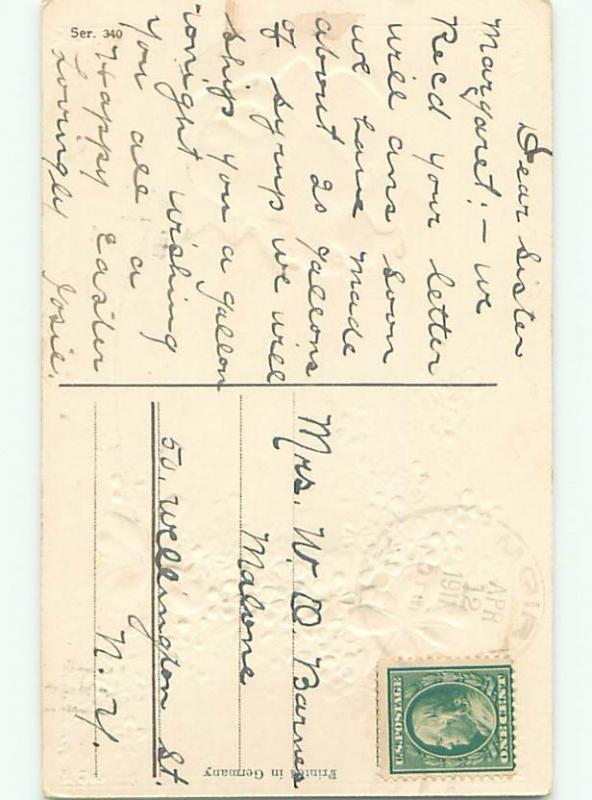 Ser. 340
Dear Sister
Margaret:- we
Recd your letter
will ans soon
we have made
about 20 gallons
of syrup we will
ship you a gallon
tonight wishing
you all a
Happy Easter
Lovingly Josie.
APR
12
Mrs. W. D. Barnes
Malone
50. Wellington St.
N. Y.
U.S. POSTAGE
ONE CENT
Printed in Germany